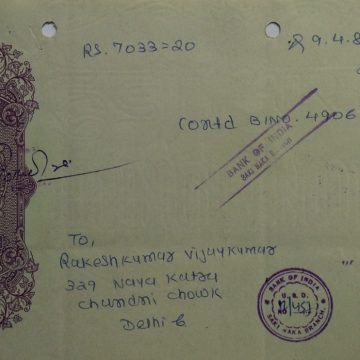 RS. 7033=20
9.4.8
Contd BINO. 4906
BANK OF INDIA
SAKI NAKA BRANCH
To,
Rakeshkumar Vijaykumar
329 Naya Katra
Chandni Chowk
Delhi 6
BANK OF INDIA
SAKI NAKA BRANCH